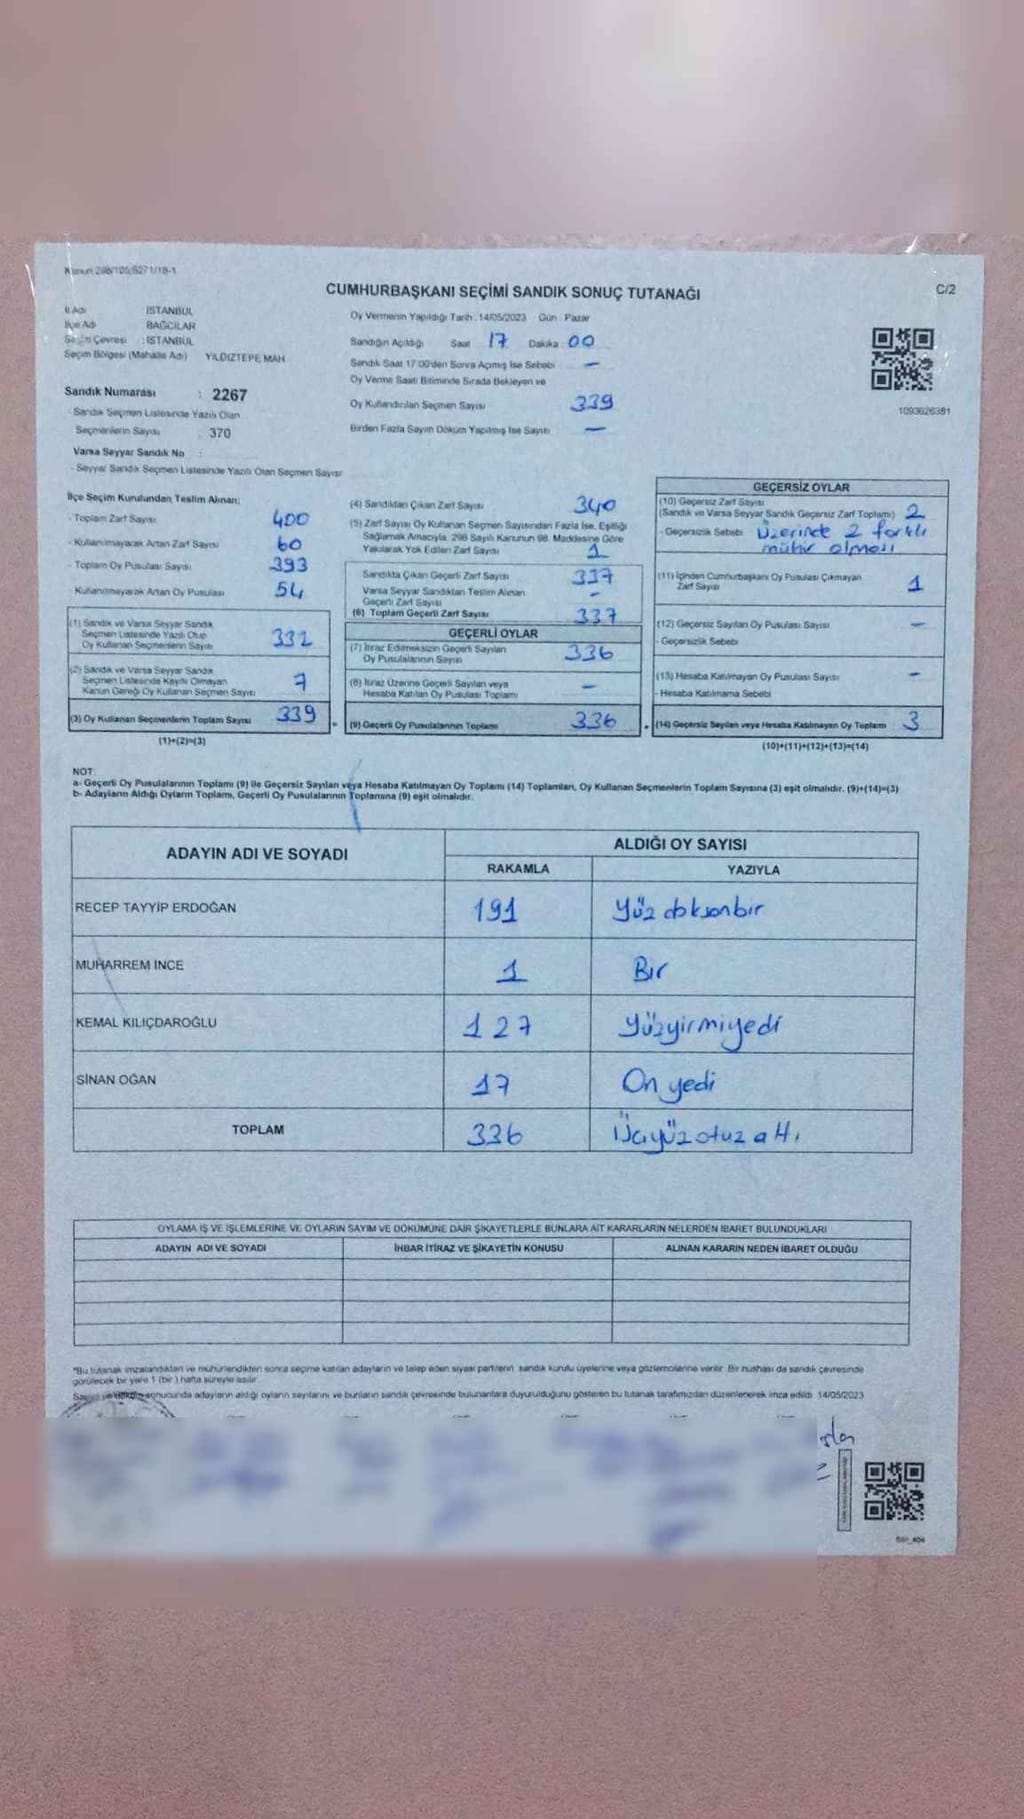 Kanun 298/105;6271/18-1
CUMHURBAŞKANI SEÇİMİ SANDIK SONUÇ TUTANAĞI
C/2
İl Adı İSTANBUL
İlçe Adı BAĞCILAR
Seçim Çevresi : İSTANBUL
Seçim Bölgesi (Mahalle Adı) YILDIZTEPE MAH
Sandık Numarası : 2267
- Sandık Seçmen Listesinde Yazılı Olan
Seçmenlerin Sayısı : 370
Varsa Seyyar Sandık No :
- Seyyar Sandık Seçmen Listesinde Yazılı Olan Seçmen Sayısı
Oy Vermenin Yapıldığı Tarih :14/05/2023 Gün : Pazar
Sandığın Açıldığı Saat 17 Dakika : 00
Sandık Saat 17:00'den Sonra Açımış İse Sebebi —
Oy Verme Saati Bitiminde Sırada Bekleyen ve
Oy Kullandırılan Seçmen Sayısı 339
Birden Fazla Sayım Döküm Yapılmış İse Sayısı —
1093626381
İlçe Seçim Kurulundan Teslim Alınan;
- Toplam Zarf Sayısı 400
- Kullanılmayarak Artan Zarf Sayısı 60
- Toplam Oy Pusulası Sayısı 393
- Kullanılmayarak Artan Oy Pusulası 54
(1) Sandık ve Varsa Seyyar Sandık
Seçmen Listesinde Yazılı Olup
Oy Kullanan Seçmenlerin Sayısı 332
(2) Sandık ve Varsa Seyyar Sandık
Seçmen Listesinde Kayıtlı Olmayan
Kanun Gereği Oy Kullanan Seçmen Sayısı 7
(3) Oy Kullanan Seçmenlerin Toplam Sayısı 339
(1)+(2)=(3)
(4) Sandıktan Çıkan Zarf Sayısı 340
(5) Zarf Sayısı Oy Kullanan Seçmen Sayısından Fazla İse, Eşitliği
Sağlamak Amacıyla, 298 Sayılı Kanunun 98. Maddesine Göre
Yakılarak Yok Edilen Zarf Sayısı 1
Sandıkta Çıkan Geçerli Zarf Sayısı 337
Varsa Seyyar Sandıktan Teslim Alınan
Geçerli Zarf Sayısı -
(6) Toplam Geçerli Zarf Sayısı 337
GEÇERLİ OYLAR
(7) İtiraz Edilmeksizin Geçerli Sayılan
Oy Pusulalarının Sayısı 336
(8) İtiraz Üzerine Geçerli Sayılan veya
Hesaba Katılan Oy Pusulası Toplamı —
(9) Geçerli Oy Pusulalarının Toplamı 336
GEÇERSİZ OYLAR
(10) Geçersiz Zarf Sayısı
(Sandık ve Varsa Seyyar Sandık Geçersiz Zarf Toplamı) 2
- Geçersizlik Sebebi Üzerinde 2 farklı
mühür olması
(11) İçinden Cumhurbaşkanı Oy Pusulası Çıkmayan
Zarf Sayısı 1
(12) Geçersiz Sayılan Oy Pusulası Sayısı —
- Geçersizlik Sebebi
(13) Hesaba Katılmayan Oy Pusulası Sayısı —
- Hesaba Katılmama Sebebi
(14) Geçersiz Sayılan veya Hesaba Katılmayan Oy Toplamı 3
(10)+(11)+(12)+(13)=(14)
NOT:
a- Geçerli Oy Pusulalarının Toplamı (9) ile Geçersiz Sayılan veya Hesaba Katılmayan Oy Toplamı (14) Toplamları, Oy Kullanan Seçmenlerin Toplam Sayısına (3) eşit olmalıdır. (9)+(14)=(3)
b- Adayların Aldığı Oyların Toplamı, Geçerli Oy Pusulalarının Toplamına (9) eşit olmalıdır.
ADAYIN ADI VE SOYADI
ALDIĞI OY SAYISI
RAKAMLA YAZIYLA
RECEP TAYYİP ERDOĞAN 191 Yüz doksanbir
MUHARREM İNCE 1 Bir
KEMAL KILIÇDAROĞLU 127 Yüzyirmiyedi
SİNAN OĞAN 17 On yedi
TOPLAM 336 Üçyüzotuzaltı
OYLAMA İŞ VE İŞLEMLERİNE VE OYLARIN SAYIM VE DÖKÜMÜNE DAİR ŞİKAYETLERLE BUNLARA AİT KARARLARIN NELERDEN İBARET BULUNDUKLARI
ADAYIN ADI VE SOYADI İHBAR İTİRAZ VE ŞİKAYETİN KONUSU ALINAN KARARIN NEDEN İBARET OLDUĞU
*Bu tutanak imzalandıktan ve mühürlendikten sonra seçime katılan adayların ve talep eden siyasi partilerin sandık kurulu üyelerine veya gözlemcilerine verilir. Bir nüshası da sandık çevresinde
görülecek bir yere 1 (bir) hafta süreyle asılır.
Sayım ve döküm sonucunda adayların aldığı oyların sayılarını ve bunların sandık çevresinde bulunanlara duyurulduğunu gösteren bu tutanak tarafımızdan düzenlenerek imza edildi. 14/05/2023